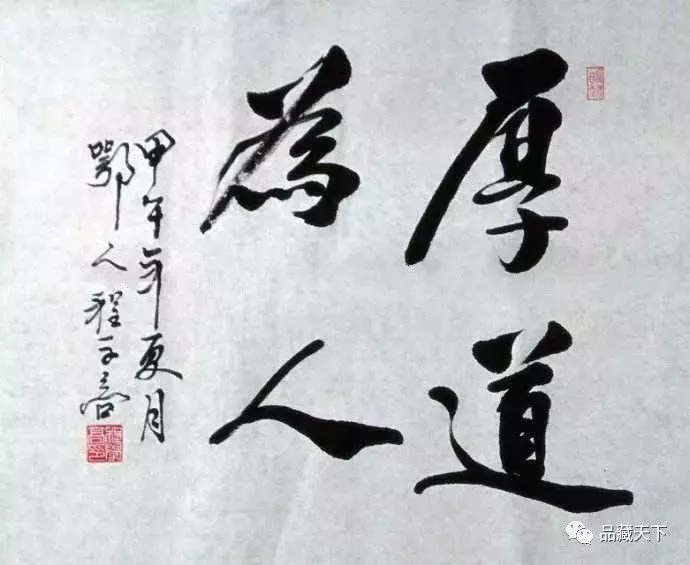 厚道
為人
甲午年夏月
鄂人程
品藏天下